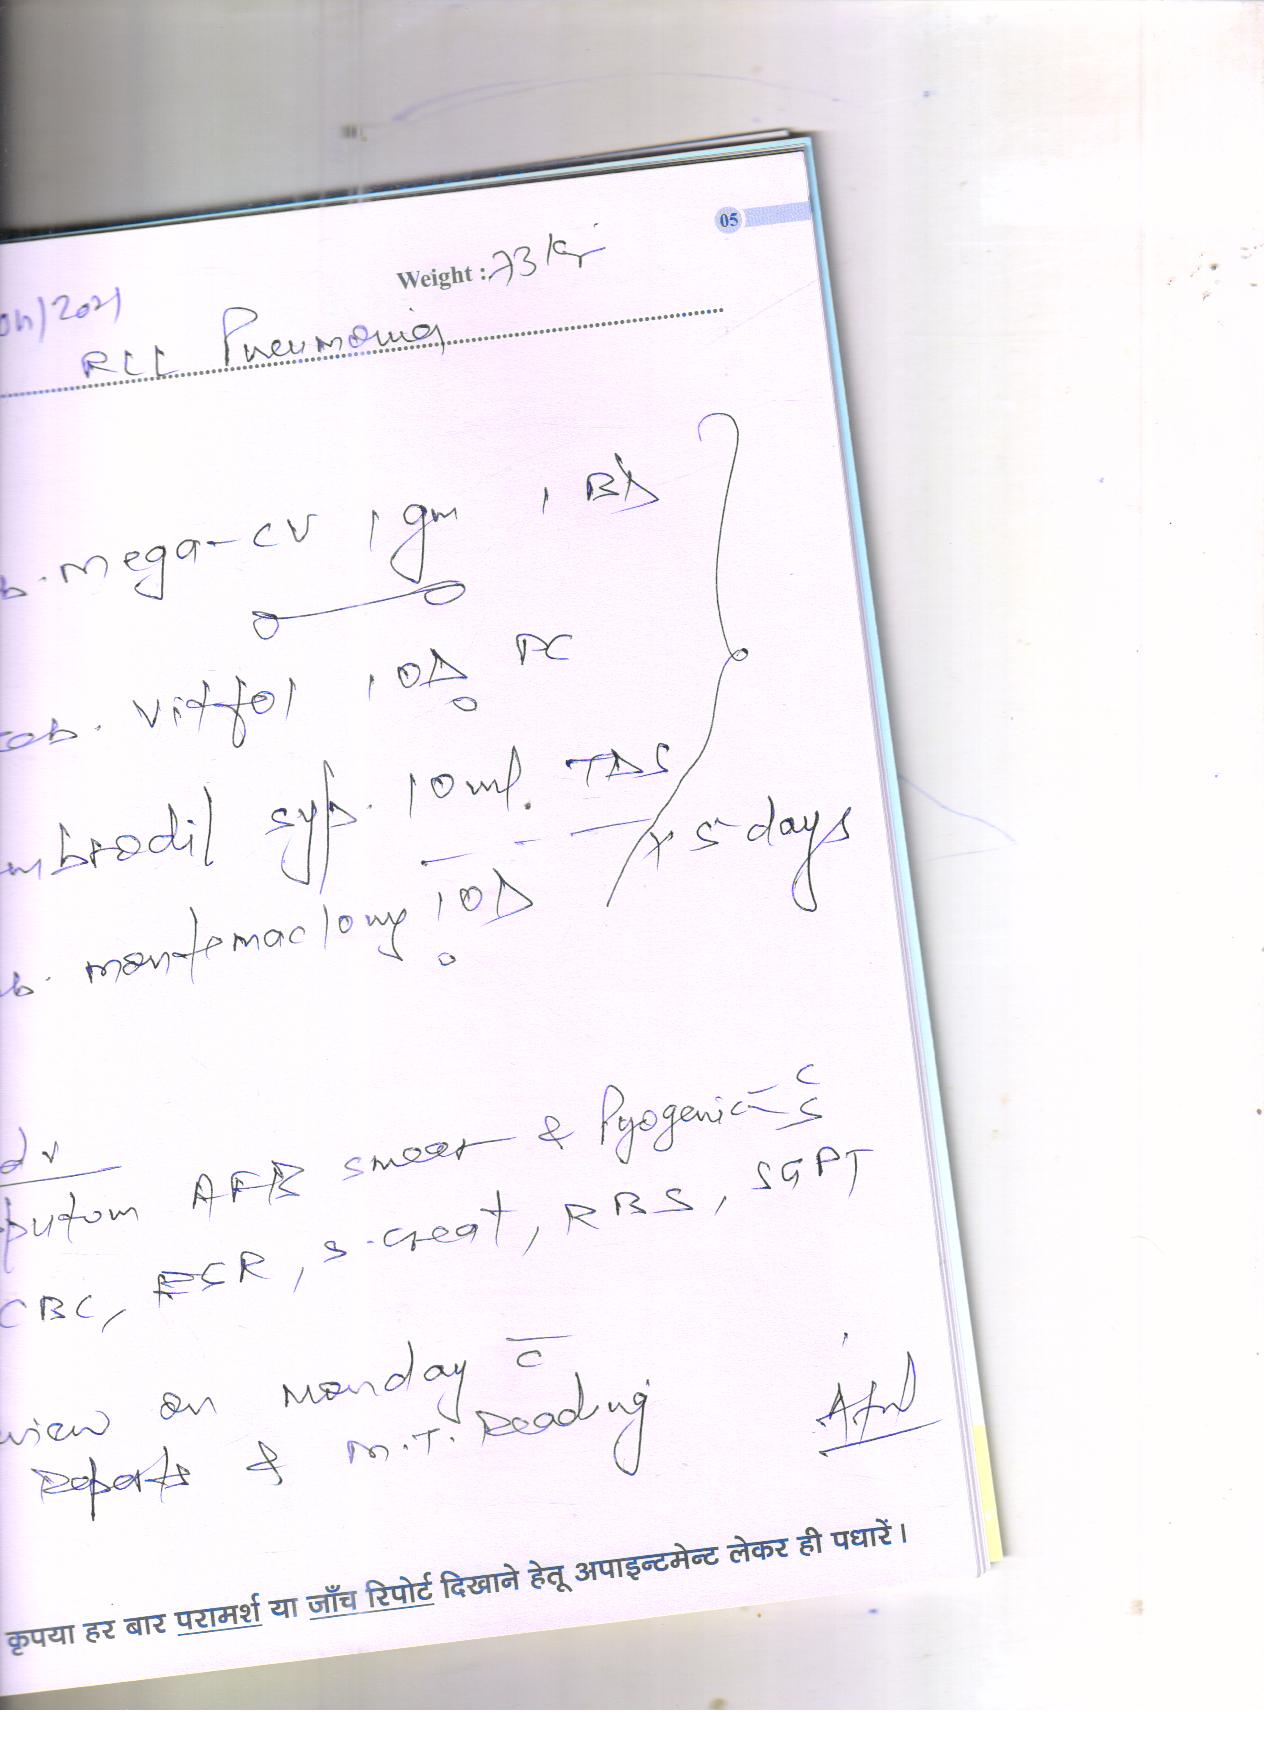 05
Weight : 73 kg
04/2021
RLL Pneumonia
b. mega-CV 1 gm 1 BD
Tab. Vitfol 1 OD PC
mbrodil syp. 10 ml. TDS
x 5 days
b. montemac 10 mg 1 OD
dv
putum AFB smear & Pyogenic C/S
CBC, ESR, S. Creat, RBS, SGPT
view on Monday c̄
Reports & M.T. Reading
कृपया हर बार परामर्श या जाँच रिपोर्ट दिखाने हेतू अपाइन्टमेन्ट लेकर ही पधारें।